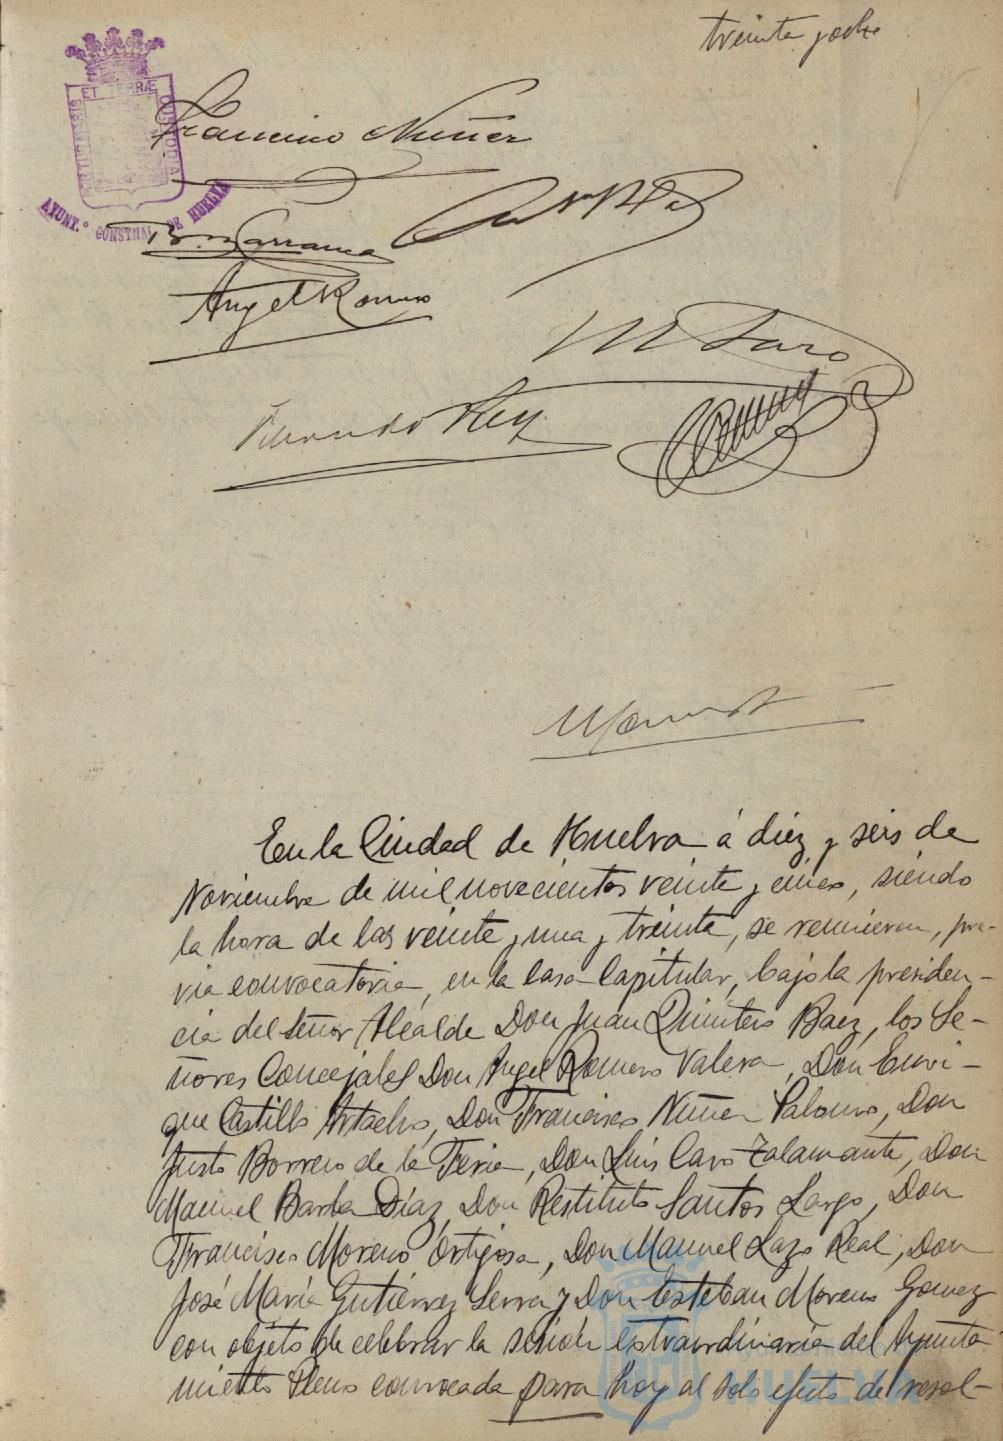 treinta y ocho
ET TERRÆ
PORTUS MARIS
CUSTODIA
AYUNT.º CONSTNAL DE HUELVA
Francisco Nuñez
Angel Romero
Fernando Rey
En la Ciudad de Huelva á diez y seis de
Noviembre de mil novecientos veinte y cinco, siendo
la hora de las veinte y una y treinta, se reunieron, pre-
via convocatoria, en la Casa Capitular, bajo la presiden-
cia del Señor Alcalde Don Juan Quintero Baez, los Se-
ñores Concejales Don Angel Romero Valera, Don Enri-
que Castillo Artacho, Don Francisco Nuñez Palomo, Don
Justo Borrero de la Feria, Don Luis Caro Zalamante, Don
Manuel Barba Díaz, Don Restituto Santos Largo, Don
Francisco Moreno Ortigosa, Don Manuel Lazo Real, Don
José María Gutiérrez Serra y Don Esteban Moreno Gomez
con objeto de celebrar la sesión extraordinaria del Ayunta
miento Pleno convocada para hoy al solo efecto de resol-
HUELVA